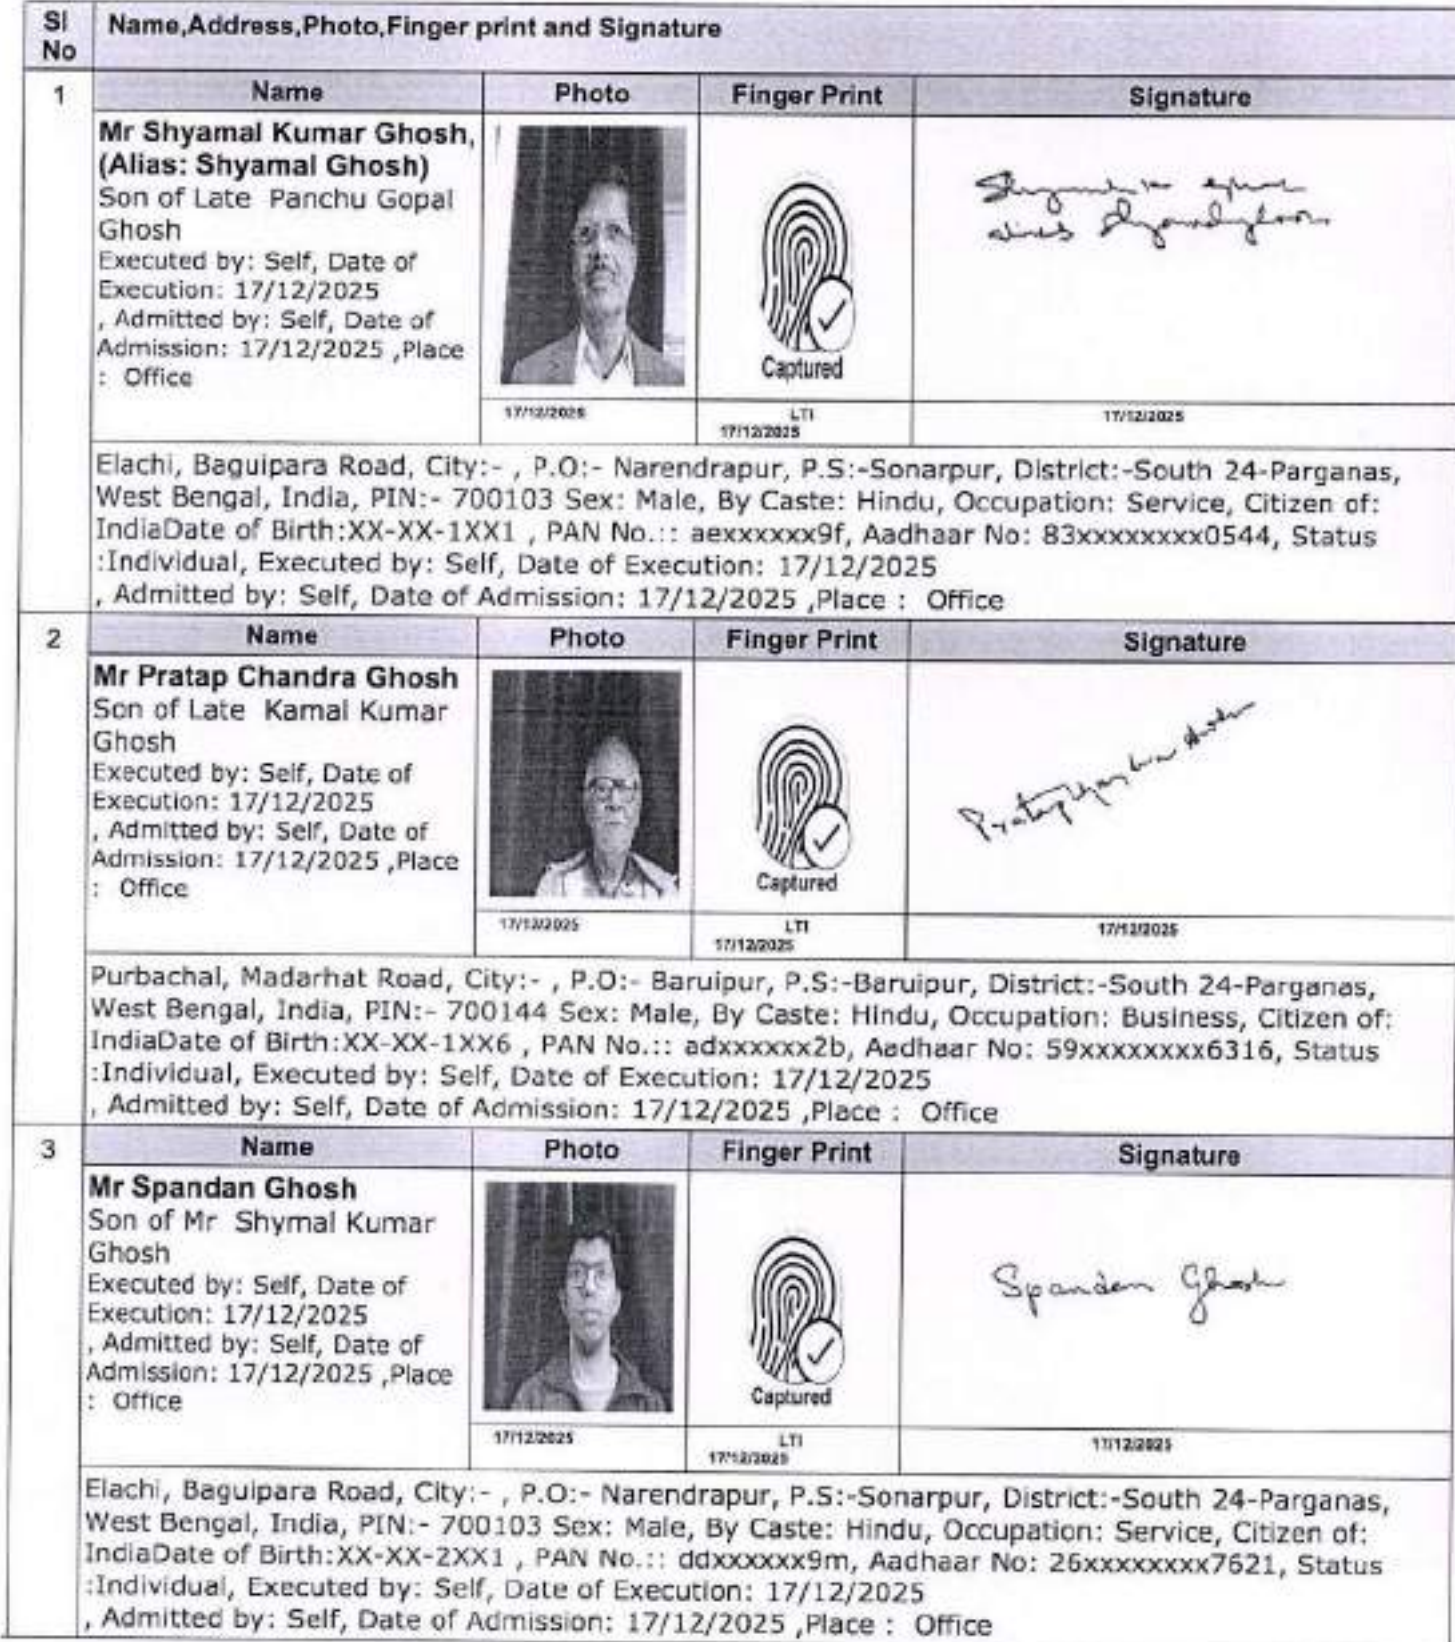 Sl No
Name,Address,Photo,Finger print and Signature
1
Name
Photo
Finger Print
Signature
Mr Shyamal Kumar Ghosh,
(Alias: Shyamal Ghosh)
Son of Late Panchu Gopal
Ghosh
Executed by: Self, Date of
Execution: 17/12/2025
, Admitted by: Self, Date of
Admission: 17/12/2025 ,Place
: Office
Captured
17/12/2025
LTI
17/12/2025
17/12/2025
Elachi, Baguipara Road, City:- , P.O:- Narendrapur, P.S:-Sonarpur, District:-South 24-Parganas,
West Bengal, India, PIN:- 700103 Sex: Male, By Caste: Hindu, Occupation: Service, Citizen of:
IndiaDate of Birth:XX-XX-1XX1 , PAN No.:: aexxxxxx9f, Aadhaar No: 83xxxxxxxx0544, Status
:Individual, Executed by: Self, Date of Execution: 17/12/2025
, Admitted by: Self, Date of Admission: 17/12/2025 ,Place : Office
2
Name
Photo
Finger Print
Signature
Mr Pratap Chandra Ghosh
Son of Late Kamal Kumar
Ghosh
Executed by: Self, Date of
Execution: 17/12/2025
, Admitted by: Self, Date of
Admission: 17/12/2025 ,Place
: Office
Captured
17/12/2025
LTI
17/12/2025
17/12/2025
Purbachal, Madarhat Road, City:- , P.O:- Baruipur, P.S:-Baruipur, District:-South 24-Parganas,
West Bengal, India, PIN:- 700144 Sex: Male, By Caste: Hindu, Occupation: Business, Citizen of:
IndiaDate of Birth:XX-XX-1XX6 , PAN No.:: adxxxxxx2b, Aadhaar No: 59xxxxxxxx6316, Status
:Individual, Executed by: Self, Date of Execution: 17/12/2025
, Admitted by: Self, Date of Admission: 17/12/2025 ,Place : Office
3
Name
Photo
Finger Print
Signature
Mr Spandan Ghosh
Son of Mr Shymal Kumar
Ghosh
Executed by: Self, Date of
Execution: 17/12/2025
, Admitted by: Self, Date of
Admission: 17/12/2025 ,Place
: Office
Captured
Spandan Ghosh
17/12/2025
LTI
17/12/2025
17/12/2025
Elachi, Baguipara Road, City:- , P.O:- Narendrapur, P.S:-Sonarpur, District:-South 24-Parganas,
West Bengal, India, PIN:- 700103 Sex: Male, By Caste: Hindu, Occupation: Service, Citizen of:
IndiaDate of Birth:XX-XX-2XX1 , PAN No.:: ddxxxxxx9m, Aadhaar No: 26xxxxxxxx7621, Status
:Individual, Executed by: Self, Date of Execution: 17/12/2025
, Admitted by: Self, Date of Admission: 17/12/2025 ,Place : Office